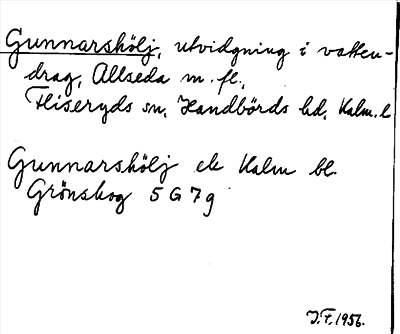 Gunnarshölj, utvidgning i vatten-
drag, Allseda m. fl.,
Fliseryds sn, Handbörds hd, Kalm. l
Gunnarshölj ek Kalm bl.
Grönskog 5 G 7 g
J.F. 1956.